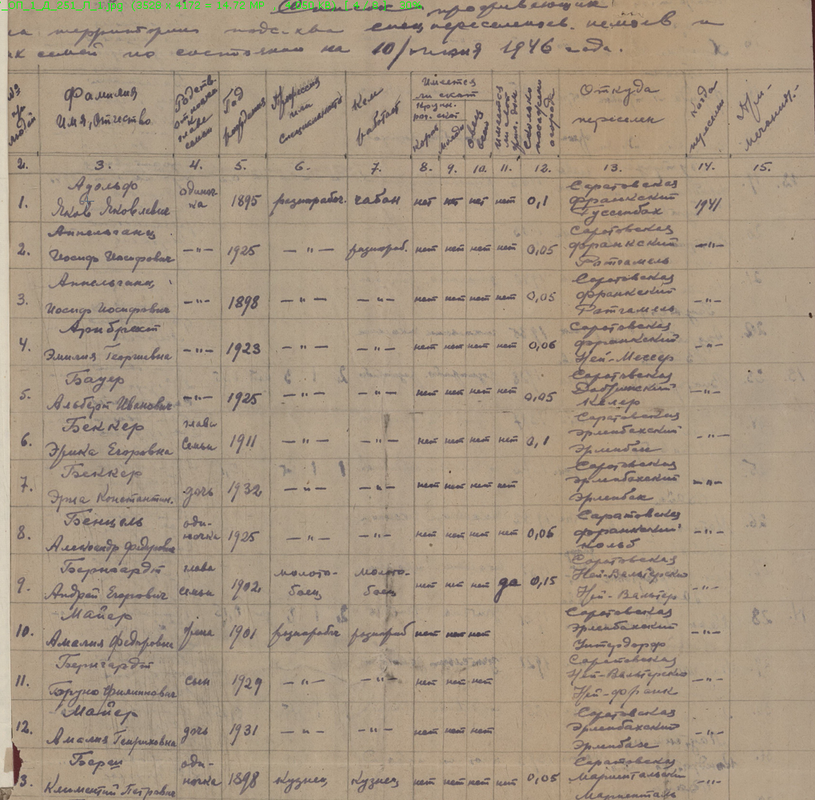 проживающих
на территории подсхоза спец переселенцев немцев и
их семей по состоянию на 10/июня 1946 года.
Фамилия
Имя, отчество
Родств.
отношен.
главе
семьи
Год
рождения
Профессия
или
специальность
Кем
работает
Имеется
ли скот
Круп.
рог. скот
Коров
овец
Имеется
Сколько
посажено
огорода
Откуда
переселен
Когда
переселен
При-
мечания.
2. 3. 4. 5. 6. 7. 8. 9. 10. 11. 12. 13. 14. 15.
1. Адольф
Яков Яковлевич
одиноч-
ка
1895 разнорабоч. чабан нет нет нет нет 0,1
Саратовская
франкский
Гуссенбах
1941
2.
Иосиф Иосифович
-"- 1925 -"- разнораб. нет нет нет нет 0,05
Саратовская
франкский
-"-
3.
Иосиф Иосифович
-"- 1898 -"- -"- нет нет нет нет 0,05
Саратовская
франкский
-"-
4. Армбрехт
Эмилия Георгиевна
-"- 1923 -"- -"- нет нет нет нет 0,06
Саратовская
франкский
Ней-Мессер
-"-
5. Бауер
Альберт Иванович
-"- 1925 -"- -"- нет нет нет нет 0,05
Саратовская
Добринский
Келер
-"-
6. Беккер
Эрика Егоровна
глава
семьи
1911 -"- -"- нет нет нет нет 0,1
Саратовская
Эрленбахский
Эрленбах
-"-
7. Беккер
Эрна Константин.
дочь 1932 -"- -"- нет нет нет нет
Саратовская
Эрленбахский
Эрленбах
-"-
8. Бенцель
Александр Федорович
оди-
ночка
1925 -"- -"- нет нет нет нет 0,06
Саратовская
франкский
Кольб
-"-
9. Бернгардт
Андрей Егорович
глава
семьи
1902
молото-
боец
молото-
боец
нет нет нет да 0,15
Саратовская
Ней-Вальтерский
Ней-Вальтер
-"-
10. Майер
Амалия Федоровна
жена 1901 разнорабоч разнораб. нет нет нет
Саратовская
Эрленбахский
Унтердорф
-"-
11. Бернгардт
Бруно Филиппович
сын 1929 -"- -"- нет нет нет
Саратовская
Ней-Вальтерский
Ней-франк
-"-
12. Майер
Амалия Генриховна
дочь 1931 -"- -"- нет нет нет
Саратовская
Эрленбахский
Эрленбах
-"-
13.
Климентий Петрович
оди-
ночка
1898 кузнец кузнец нет нет нет нет 0,05
Саратовская
Мариентальский
Мариенталь
-"-